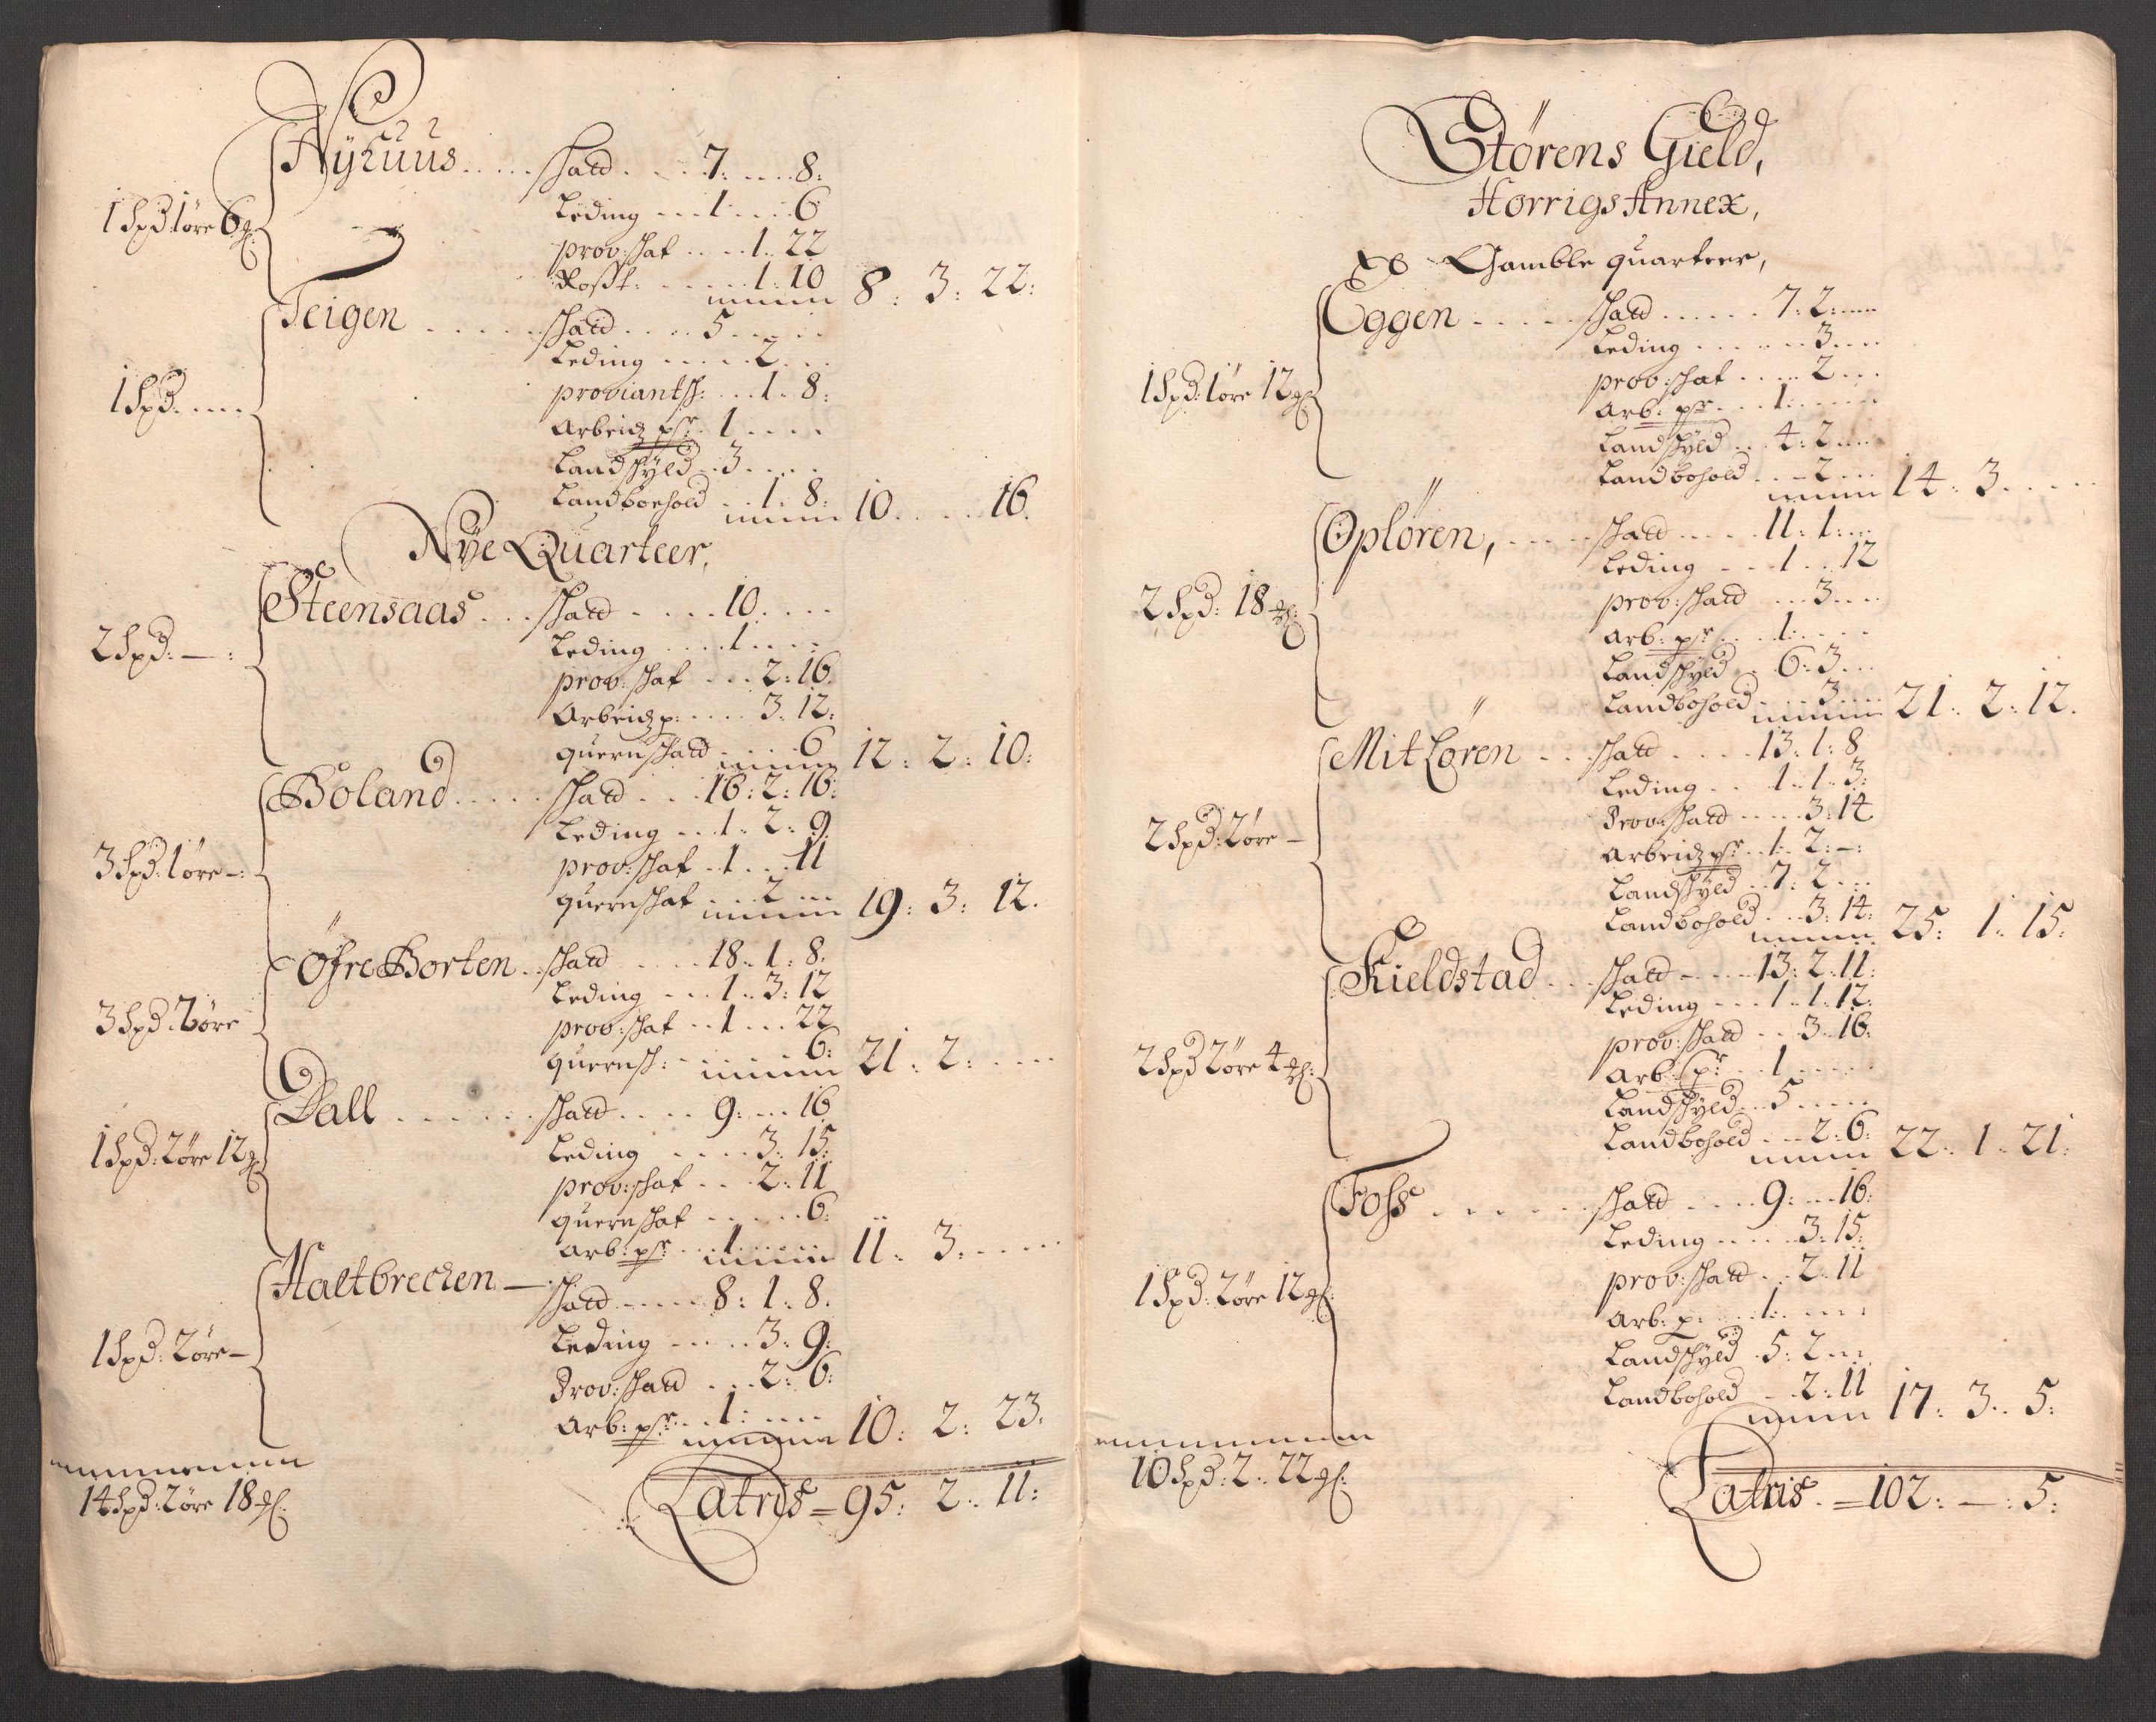 Nÿhuus . . . . . shatt . . . . 7: . . . . 8:
1 spd 1 øre 6 gl:
Leding . . . 1 . . . . 6
prov: shat . . . . 1 . . 22
Rosst: . . . . . . 1: 10
8: 3: 22:
Teigen . . . . . shatt . . . . 5 . . . . .
1 spd: . . . .
Leding . . . . . 2 . . .
proviantsh: . . . 1 . 8:
Arbeidz psr: . 1 . . . .
Landshÿld . . 3 . . . .
Landboehold . . 1 . 8: 10 . . . . . 16.
Nÿe Quarteer,
Steensaas . . . shatt . . . . . 10. . . .
2 spd: — :
Leding . . . . . 1 . . . .
prov: shat . . . 2: 16.
Arbeidz p: . . . . 3: 12:
quernshatt . . . . . 6 12: 2: 10:
Boland . . . . . shatt . . . 16: 2: 16:
3 spd: 1 øre —:
Leding . . . 1 . 2: 9.
prov: shat . 1 . . . 11
quernshat . . . 2 . . . 19: 3: 12.
Öfre Borten . . shatt . . . . 18. 1: 8.
3 spd: 2 øre
Leding . . . 1 . . 3: 12
prov: shat . . 1 . . . 22
quernsh: . . . . . . 6: 21: 2: . . . .
Dall . . . . . . shatt . . . . 9: . . . 16
1 spd: 2 øre 12 gl:
Leding . . . . . 3: 15:
prov: shat . . . 2: 11
quernshat . . . . . . 6:
Arb: psr: . . . 1 . . . . . 11: 3: . . . . .
Haltbrecken — shatt . . . . . 8: 1: 8.
1 spd: 2 øre —
Leding . . . . . 3: 9:
Prov: shatt . . . 2: 6:
Arb: psr: . . 1: . . . . 10: 2: 23.
14 spd: 2 øre 18 gl:
Latris = 95: 2: 11:
Störens Gield,
Horrigs Annex,
Gamble quarteer,
Eggen . . . . . shatt . . . . . . 7: 2: . . . .
1 spd: 1 øre 12 gl:
Leding . . . . . . 3 . . . .
prov: shat . . . . . 2 . . .
Arb: psr: . . . 1: . . . . .
Landshÿld . . 4: 2 . . . .
Landbohold . . . 2 . . . 14: 3. . . . . .
Oplören, . . . . . shatt . . . . . 11: 1: . . .
2 spd: 18 gl:
Leding . . . 1 . . 12
prov: shatt . . . 3 . . . .
Arb: psr: . . . 1: . . . .
Landshÿld . . 6: 3 . . .
Landbohold . . . 3 . . . . 21: 2: 12.
Mit Lören . . . shatt . . . . . 13: 1: 8
2 spd: 2 øre —
Leding . . . 1. 1. 3:
Prov: shatt . . . . . 3: 14
Arbeidz psr: . . 1: 2: —:
Landshÿld . . 7: 2 . . .
Landbohold . . . 3: 14: 25: 1: 15.
Kieldstad . . . shatt . . . . 13: 2: 11:
2 spd 2 øre 4 gl:
Leding . . . 1 . 1: 12:
prov: shatt . . . 3. 16:
Arb: psr . . . 1 . . . . .
Landshÿld . . 5 . . . . .
Landbohold . . . 2: 6: 22: 1: 21:
Foss . . . . . . shatt . . . . 9: . . . 16:
1 spd: 2 øre 12 gl:
Leding . . . . . 3: 15:
prov: shatt . . 2: 11
Arb: p: . . . . 1: . . . .
Landshÿld . 5: 2 . . .
Landbohold . . 2: 11 17: 3: 5:
10 spd: 2: 22 gl:
Latris. = 102: — : 5: